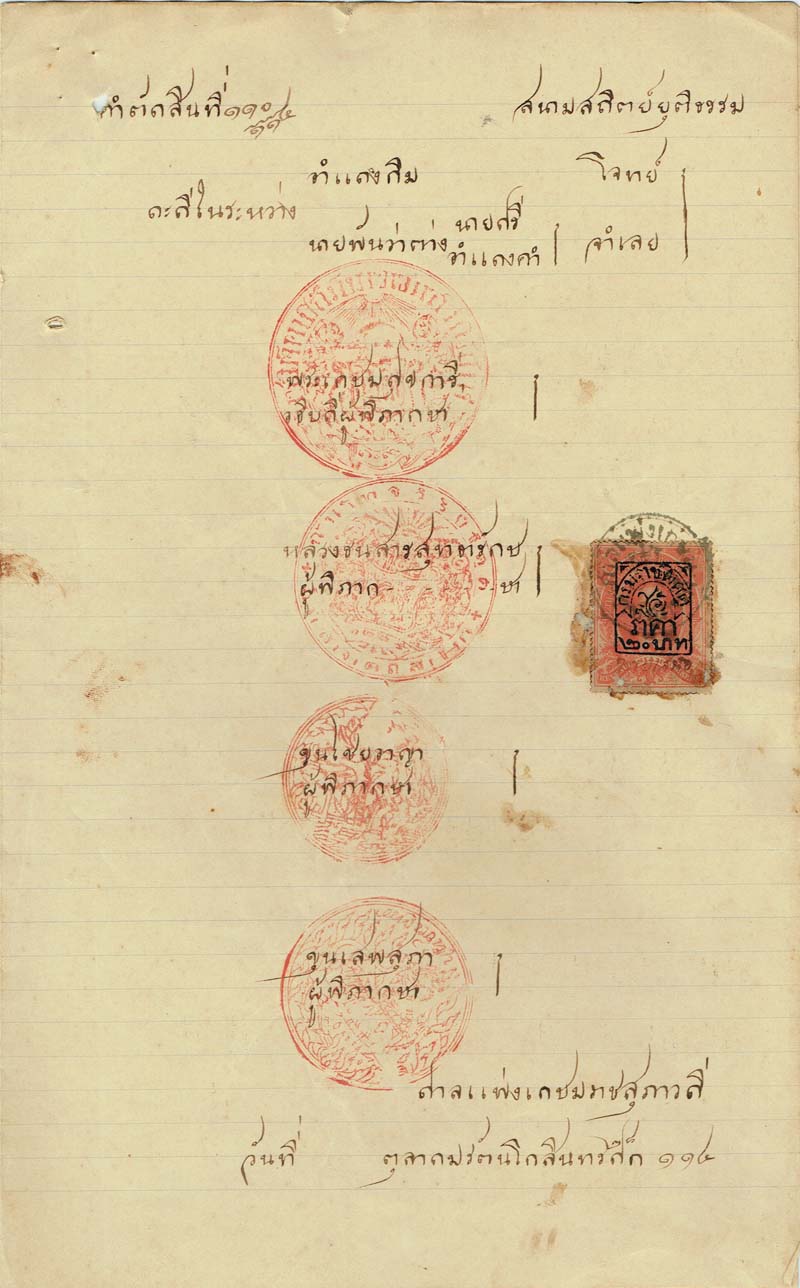 คำตัดสินที่ ๑๑๐
สนามสถิตย์ยุติธรรม
อำแดงสิม โจทย์
คะดีในระหว่าง
นายพันว่าต่าง นายศรี อำแดงคำ จำเลย
พระเกษมศุขการี,
อธิบดีผู้พิภากษา
หลวงธนสารสุทธารักษ
ผู้พิภากษา
กรมราชพัศดุ
ราคา
๒๐ บาท
ขุนไชยอาญา
ผู้พิภากษา
ขุนเสพสุภา
ผู้พิภากษา
ศาลแพ่งเกษมราชสุภาวดี
วันที่ ตุลาคม รัตนโกสินทรศก ๑๑๔